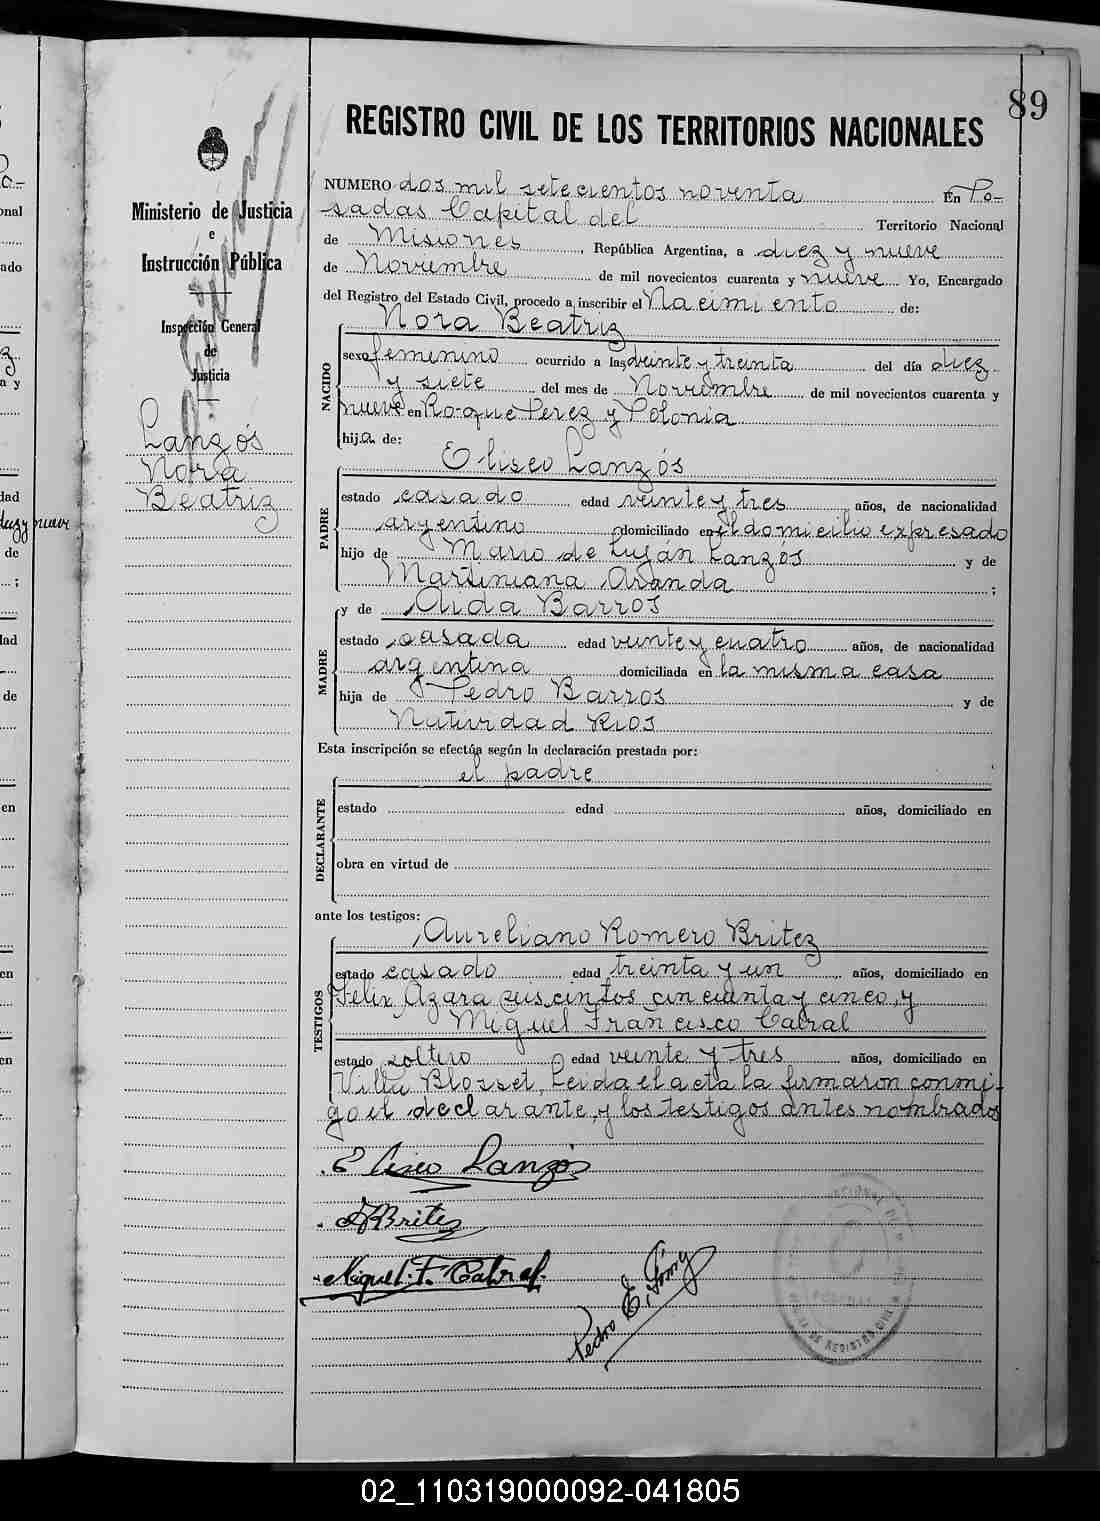 89
REGISTRO CIVIL DE LOS TERRITORIOS NACIONALES
Ministerio de Justicia
e
Instrucción Pública
Inspección General
de
Justicia
Lanzós
Nora
Beatriz
NUMERO dos mil setecientos noventa En Po-
sadas Capital del Territorio Nacional
de Misiones, República Argentina, a diez y nueve
de Noviembre de mil novecientos cuarenta y nueve Yo, Encargado
del Registro del Estado Civil, procedo a inscribir el Nacimiento de:
Nora Beatriz
NACIDO
sexo femenino ocurrido a las veinte y treinta del día diez
y siete del mes de Noviembre de mil novecientos cuarenta y
nueve en Roque Perez y Polonia
hija de:
Eliseo Lanzós
PADRE
estado casado edad veinte y tres años, de nacionalidad
argentino domiciliado en el domicilio expresado
hijo de Mario de Luján Lanzós y de
Martiniana Aranda ;
y de Aida Barros
MADRE
estado casada edad veinte y cuatro años, de nacionalidad
argentina domiciliada en la misma casa
hija de Pedro Barros y de
Natividad Rios
Esta inscripción se efectúa según la declaración prestada por:
el padre
DECLARANTE
estado edad años, domiciliado en
obra en virtud de
ante los testigos:
Aureliano Romero Britez
TESTIGOS
estado casado edad treinta y un años, domiciliado en
Felix Azara cincuenta y cinco, y
Miguel Francisco Cabral
estado soltero edad veinte y tres años, domiciliado en
Villa Blosset, Leida el acta la firmaron conmi-
go el declarante, y los testigos antes nombrados
Eliseo Lanzós
A Britez
Miguel F. Cabral
Pedro E.
02_110319000092-041805